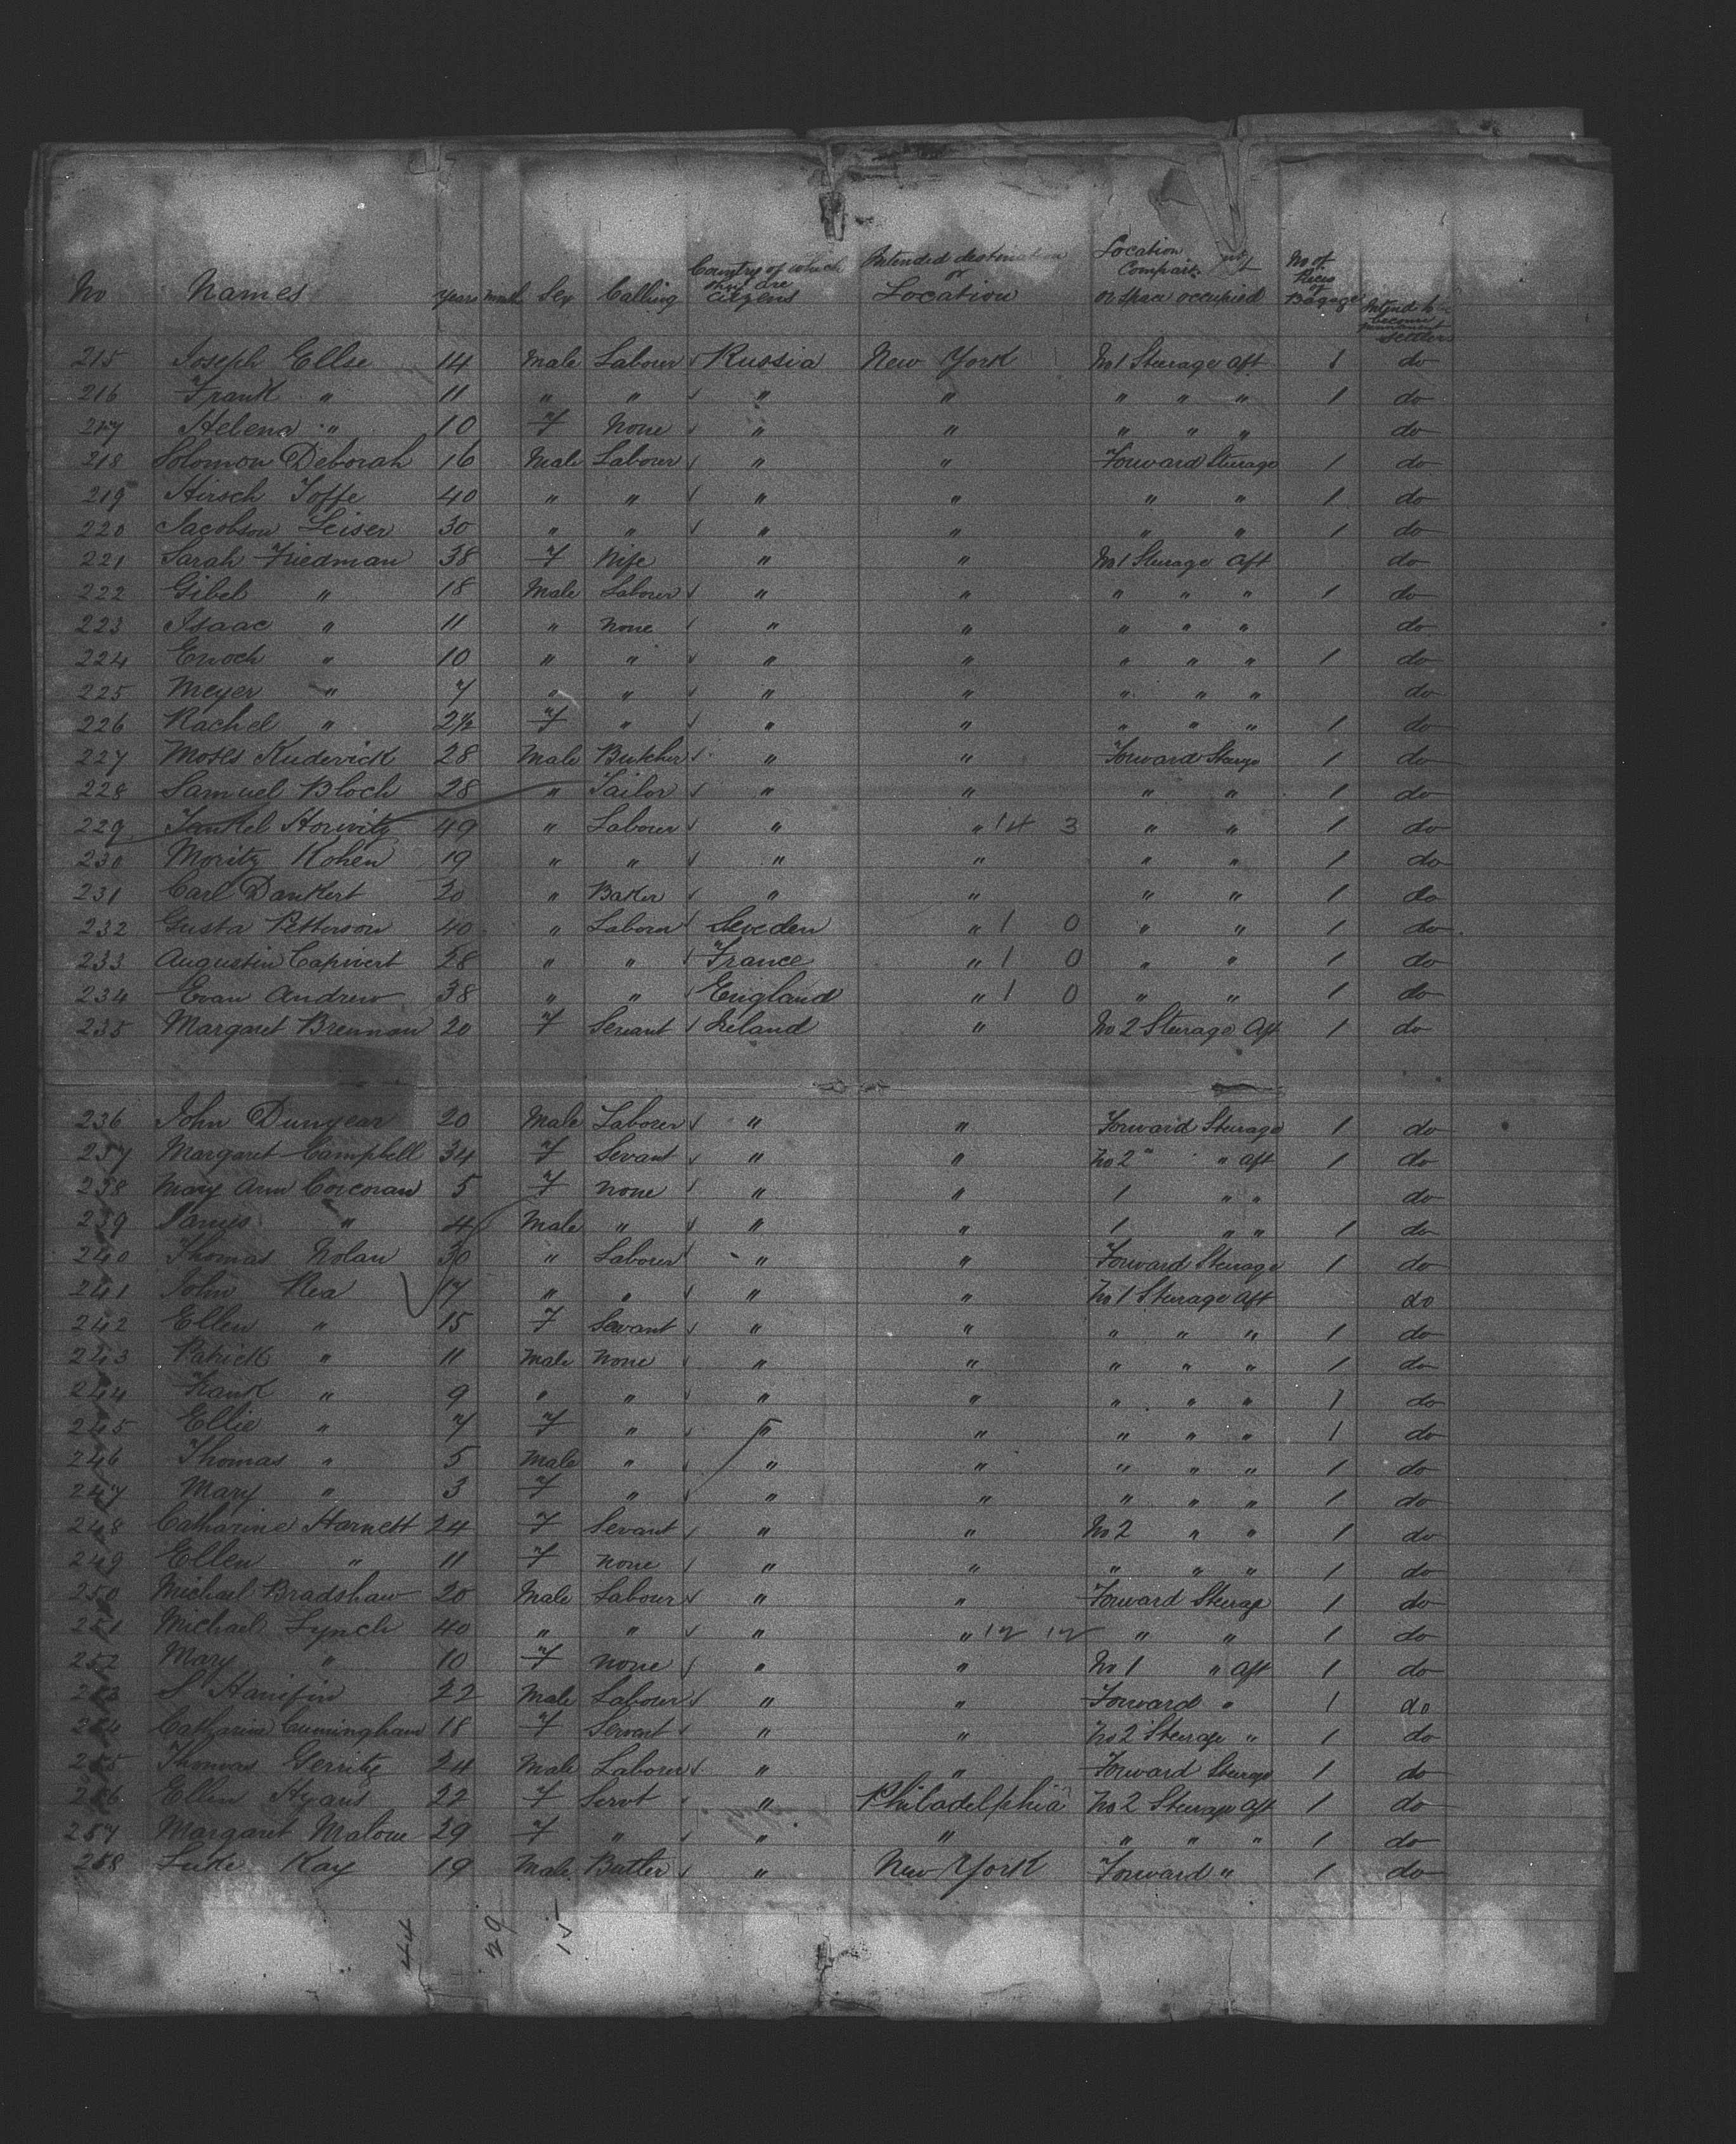 No Names years month Sex Calling Country of which they are Citizens Intended destination or Location Location Compart or space occupied No of Pieces of Bagage Intend to become permanent Settlers
215 Joseph Ellse 14 Male Labour Russia New York No 1 Steurage aft 1 do
216 Frank " 11 " " " " " " " 1 do
217 Helena " 10 F None " " " " " do
218 Solomon Deborah 16 Male Labourer " " Forward Steurage 1 do
219 Hirsch Joffe 40 " " " " " " 1 do
220 Jacobson Leiser 30 " " " " " " 1 do
221 Sarah Friedman 38 F Wife " " No 1 Steurage aft do
222 Gibel " 18 Male Labourer " " " " " 1 do
223 Isaac " 11 " none " " " " " do
224 Enoch " 10 " " " " " " " 1 do
225 Meyer " 7 " " " " " " " do
226 Rachel " 2½ F " " " " " " 1 do
227 Moses Kuderick 28 Male Butcher " " Forward Steurge 1 do
228 Samuel Bloch 28 " Tailor " " " " 1 do
229 Jankel Horwitz 49 " Labourer " " 14 3 " " 1 do
230 Moritz Kohen 19 " " " " " " 1 do
231 Carl Dankert 20 " Baker " " " " 1 do
232 Gusta Petterson 40 " Labourer Sweden " 1 0 " " 1 do
233 Augustin Capivert 28 " " France " 1 0 " " 1 do
234 Evan Andrew 38 " " England " 1 0 " " 1 do
235 Margaret Brennan 20 F Servant Ireland " No 2 Steurage Aft 1 do
236 John Dunyear 20 Male Labourer " " Forward Steurage 1 do
237 Margaret Campbell 34 F Sevant " " No 2 " " aft 1 do
238 Mary Ann Corcoran 5 F none " " 1 " " do
239 James " 4 Male " " " 1 " " 1 do
240 Thomas Nolan 30 " Labourer " " Forward Steurage 1 do
241 John Rea 17 " " " " No 1 Steurage aft do
242 Ellen " 15 F Sevant " " " " " 1 do
243 Patrick " 11 Male none " " " " " 1 do
244 Frank " 9 " " " " " " " 1 do
245 Ellie " 7 F " " " " " " 1 do
246 Thomas " 5 Male " " " " " " 1 do
247 Mary " 3 F " " " " " " 1 do
248 Catharine Harnett 24 F Sevant " " No 2 " " 1 do
249 Ellen " 11 F none " " " " " 1 do
250 Michael Bradshaw 20 Male Labour " " Forward Steurage 1 do
251 Michael Lynch 40 " " " " 12 12 " " 1 do
252 Mary " 10 F none " " No 1 " aft 1 do
253 S Hanifin 22 Male Labour " " Forward " 1 do
254 Catharine Cunningham 18 F Servant " " No 2 Steurage " 1 do
255 Thomas Gerrity 24 Male Labourer " " Forward Steurage 1 do
256 Ellen Hyans 22 F Servt " Philadelphia No 2 Steurage aft 1 do
257 Margaret Malone 29 F " " " " " " 1 do
258 Luke Kay 19 Male Butler " New York Forward " 1 do
44 29 15